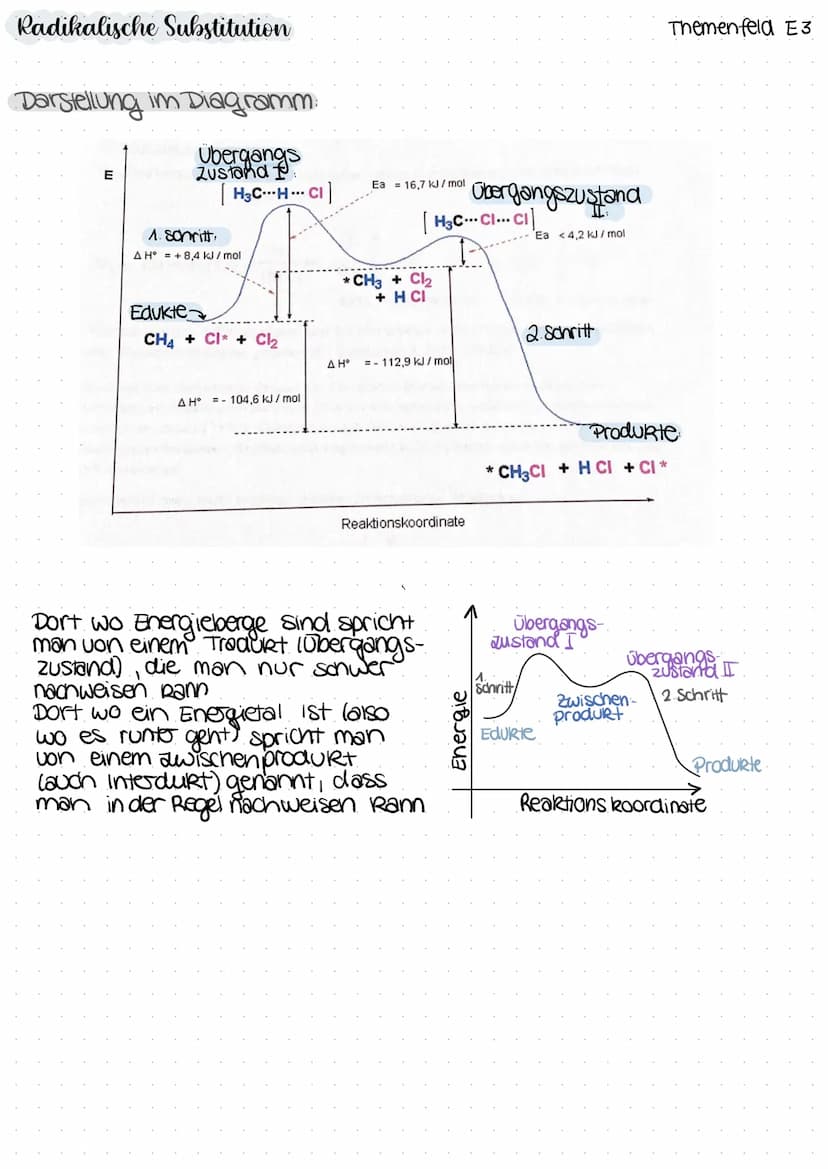 Radikalische Substitution
Themenfeld E3
Darstellung im Diagramm:
Übergangs
zustand I:
E
[H₃C···H···Cl]
Ea = 16,7 kJ / mol
Übergangszustand
II:
[H₃C···Cl···Cl]
Ea < 4,2 kJ / mol
1. Schritt:
ΔH° = + 8,4 kJ / mol
*CH₃ + Cl₂
+ H Cl
Edukte
CH₄ + Cl* + Cl₂
2. Schritt
ΔH° = - 112,9 kJ / mol
ΔH° = - 104,6 kJ / mol
Produkte:
*CH₃Cl + H Cl + Cl*
Reaktionskoordinate
Dort wo Energieberge sind spricht
man von einem Trodukt (Übergangs-
zustand), die man nur schwer
nachweisen kann
Dort wo ein Energietal ist (also
wo es runter geht) spricht man
von einem zwischenprodukt
(auch Interdukt) genannt, dass
man in der Regel nachweisen kann
Energie
Übergangs-
zustand I
Übergangs-
zustand II
1.
Schritt
Zwischen-
produkt
2 Schritt
Edukte
Produkte
Reaktions koordinate